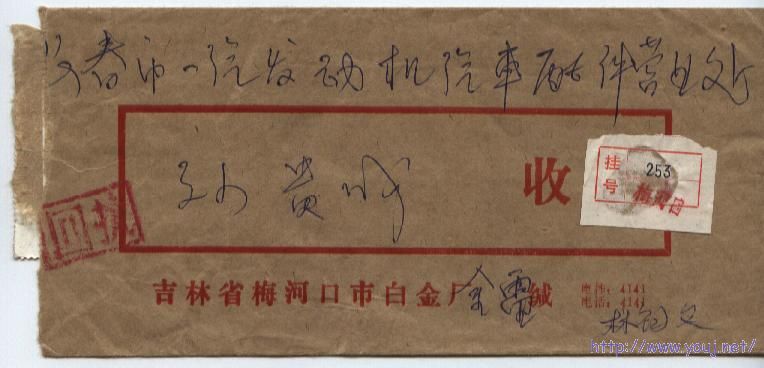 长春市一汽发动机汽车配件营业处
孙贵成
收
挂号
253
梅河口
回执
吉林省梅河口市白金厂 缄
电挂：4141
电话：4141
http://www.youj.net/